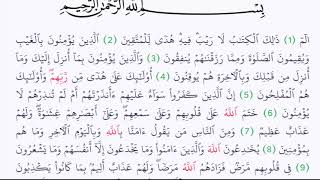 بِسْمِ اللَّهِ الرَّحْمَٰنِ الرَّحِيمِ
الٓمٓ (1) ذَٰلِكَ الْكِتَٰبُ لَا رَيْبَ فِيهِ هُدًى لِّلْمُتَّقِينَ (2) الَّذِينَ يُؤْمِنُونَ بِالْغَيْبِ
وَيُقِيمُونَ الصَّلَوٰةَ وَمِمَّا رَزَقْنَٰهُمْ يُنفِقُونَ (3) وَالَّذِينَ يُؤْمِنُونَ بِمَا أُنزِلَ إِلَيْكَ وَمَا
أُنزِلَ مِن قَبْلِكَ وَبِالْآخِرَةِ هُمْ يُوقِنُونَ (4) أُولَٰئِكَ عَلَىٰ هُدًى مِّن رَّبِّهِمْ وَأُولَٰئِكَ
هُمُ الْمُفْلِحُونَ (5) إِنَّ الَّذِينَ كَفَرُوا سَوَآءٌ عَلَيْهِمْ ءَأَنذَرْتَهُمْ أَمْ لَمْ تُنذِرْهُمْ لَا
يُؤْمِنُونَ (6) خَتَمَ اللَّهُ عَلَىٰ قُلُوبِهِمْ وَعَلَىٰ سَمْعِهِمْ وَعَلَىٰ أَبْصَٰرِهِمْ غِشَٰوَةٌ وَلَهُمْ
عَذَابٌ عَظِيمٌ (7) وَمِنَ النَّاسِ مَن يَقُولُ ءَامَنَّا بِاللَّهِ وَبِالْيَوْمِ الْآخِرِ وَمَا هُم
بِمُؤْمِنِينَ (8) يُخَٰدِعُونَ اللَّهَ وَالَّذِينَ ءَامَنُوا وَمَا يَخْدَعُونَ إِلَّا أَنفُسَهُمْ وَمَا يَشْعُرُونَ
(9) فِي قُلُوبِهِم مَّرَضٌ فَزَادَهُمُ اللَّهُ مَرَضًا وَلَهُمْ عَذَابٌ أَلِيمٌ بِمَا كَانُوا يَكْذِبُونَ